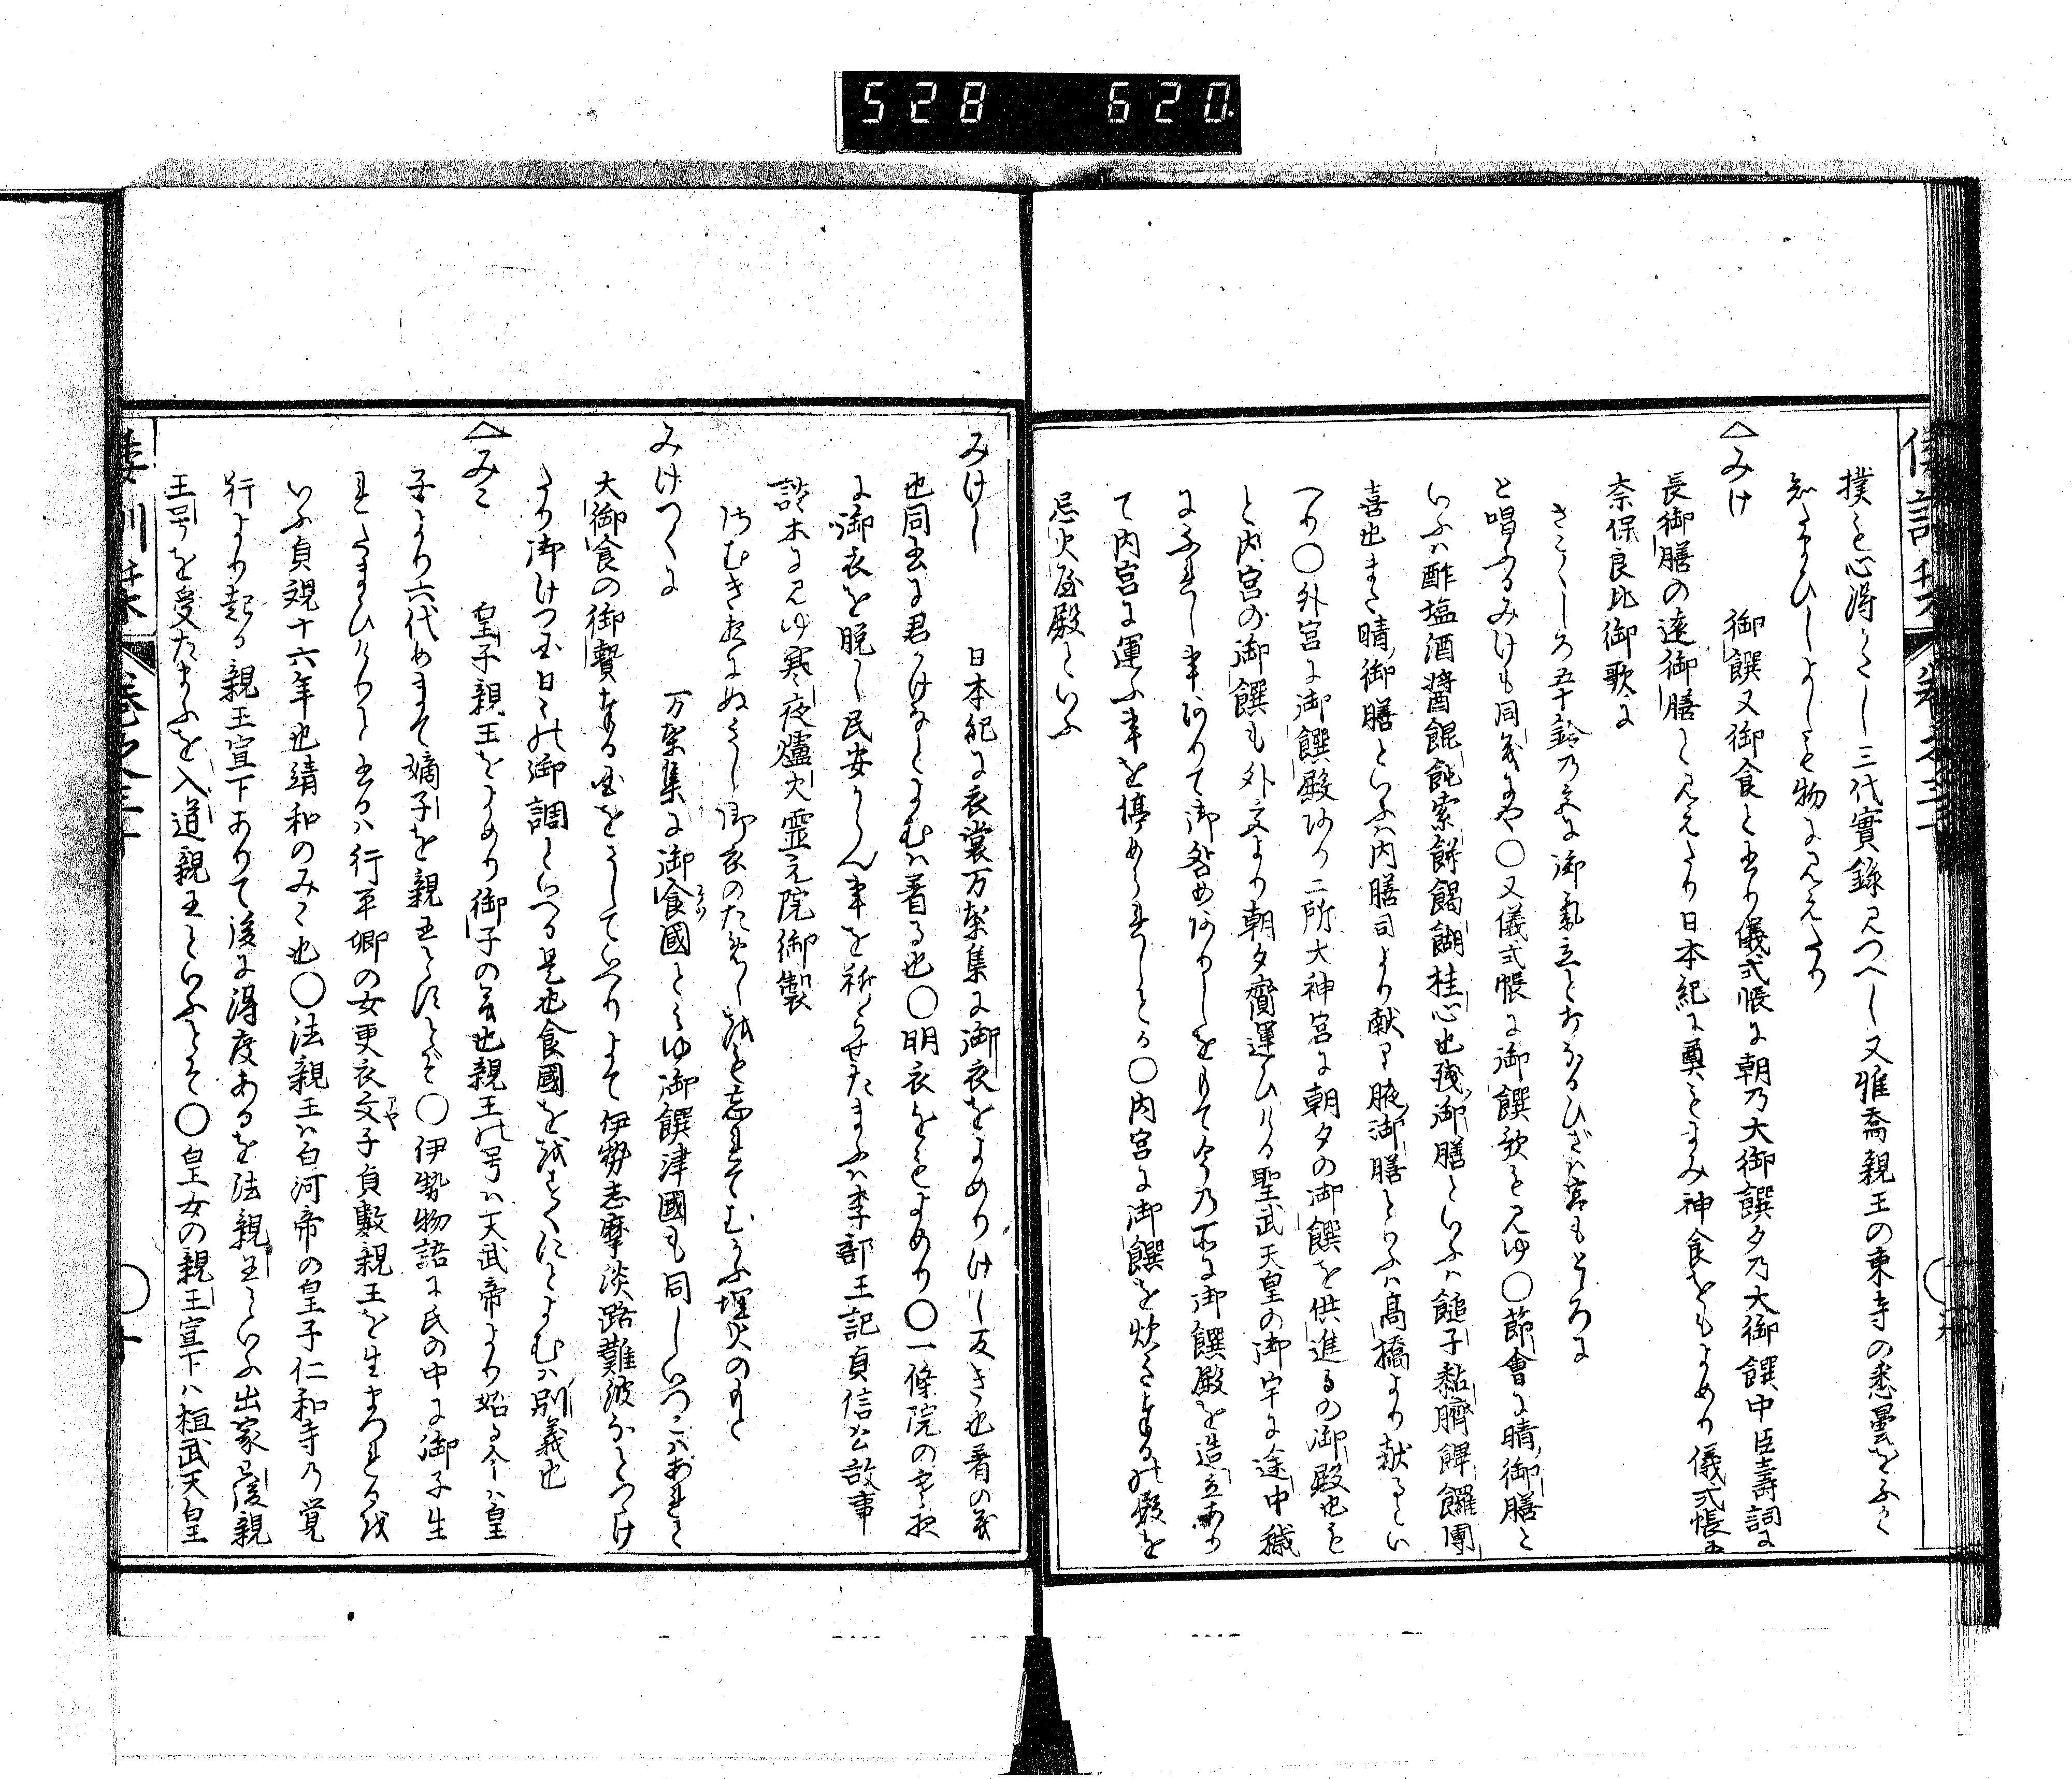 528 620
撲を心得へし三代實錄見つへし又雅喬親王の東寺の悉曇をふかく
知たまひしよしも物に見えたり
△みけ 御饌又御食と書り儀式帳に朝乃大御饌夕乃大御饌中臣壽詞に
長御膳の遠御膳と見えたり日本紀に奠をよみ神食をもよめり儀式帳に
奈保良比御歌に
さこくしろ五十鈴乃宮に御氣立とおなるひざは宮もとゝろに
と唱ふるみけも同義にや〇又儀式帳に御饌歌も見ゆ〇節會に晴御膳と
いふは酢塩酒醬餛飩索餅餲餬桂心也殘御膳といふは䭔子黏臍饆饠團
喜也また晴御膳といふは内膳司より献り腋御膳といふは高橋より献るとい
へり〇外宮に御饌殿あり二所大神宮に朝夕の御饌を供進るの御殿也も
と内宮の御饌も外宮より朝夕齎運ひける聖武天皇の御宇に途中穢
にふれし事ありて御咎めありしをもて今乃所に御饌殿を造立あり
て内宮に運ふ事を停められしとそ〇内宮に御饌を炊き奉るの殿を
忌火屋殿といふ
みけし 日本紀に衣裳万葉集に御衣をよめりけし反き也着の義
也同書に君かけなとよむは着る也〇明衣をもよめり〇一條院の寒夜
に御衣を脱し民安からん事を祈らせたまふは李部王記貞信公故事
談等に見ゆ寒夜爐火霊元院御製
さむき夜にぬきし御衣のためしをも忘れてむかふ埋火のもと
みけつくに 万葉集に御食國とみゆ御饌津國も同しいつこはあれと
大御食の御贄奉る国をさしていへりよて伊勢志摩淡路難波なとつゝけ
たり御けつ国日々の御調といへる是也食國ををすくにとよむは別義也
△みこ 皇子親王をよめり御子の義也親王の号は天武帝より始る今は皇
子より六代めまて嫡子を親王とすとそ〇伊勢物語に氏の中に御子生
れたまひけりと書るは行平卿の女更衣文子貞數親王を生まつれるを
いふ貞観十六年也清和のみこ也〇法親王は白河帝の皇子仁和寺乃覚
行より起る親王宣下ありて後に得度あるを法親王といふ出家已後親
王号を受たまふを入道親王といふとそ〇皇女の親王宣下は桓武天皇